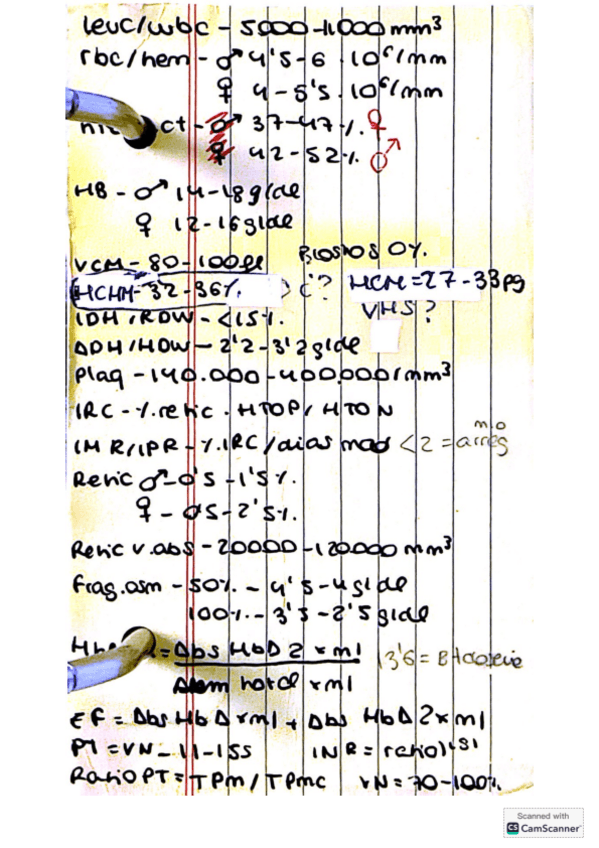 leuc/wbc - 5000-11000 mm³
rbc/hem - ♂ 4'5-6 · 10⁶/mm
♀ 4-5'5 · 10⁶/mm
ct - ♂ 37-47%. ♀
♀ 42-52%. ♂
HB - ♂ 14-18 g/dl
♀ 12-16 g/dl
VCM - 80-100 fl Blastos 0%.
HCHM - 32-36% ¿? HCM = 27-33 pg
VHS?
IDH/RDW - <15%.
ADH/HDW - 2'2-3'2 g/dl
Plaq - 140.000-400.000/mm³
IRC - %.retic · HTOP/HTON
m.o
IMR/IPR - %.IRC/dias mad <2 = arreg
Retic ♂ - 0'5-1'5%.
♀ - 0'5-2'5%.
Retic v.abs - 20000-120.000 mm³
Frag.osm - 50%. - 4'5-4 g/dl
100%. - 3'3-2'5 g/dl
= Abs HbA2 x ml
total x ml
EF = Abs HbA x ml + Abs HbA2 x ml
PT = VN - 11-15s INR = ratio ISI
Ratio PT = TPm/TPmc VN = 70-100%
Scanned with
CS CamScanner